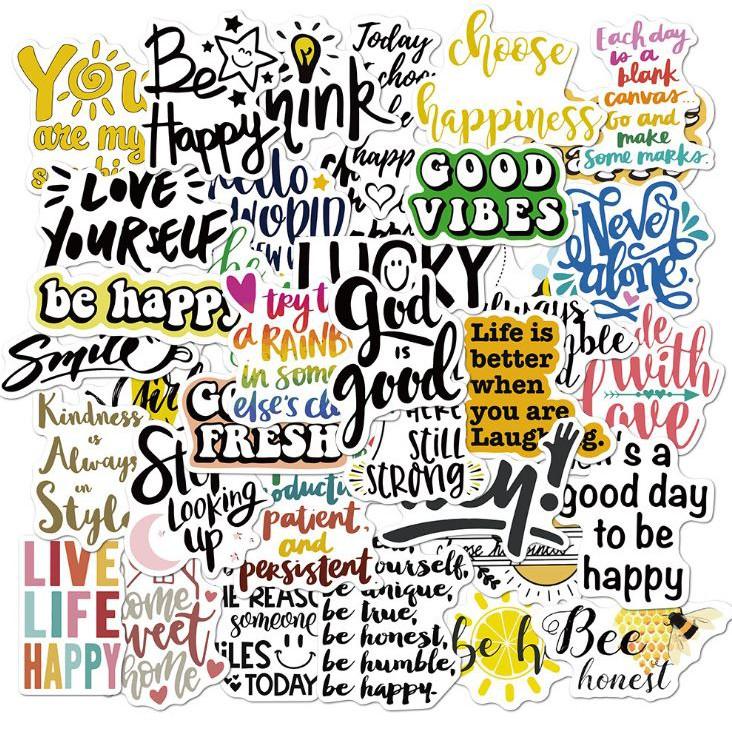 You
are my
Be
Happy
Today
choose
happiness
Each day
is a
blank
canvas...
Go and
make
some marks.
LOVE
YOURSELF
happ
GOOD
VIBES
Never
alone.
be happy
LUCKY
try t
a RAINB
in som
else's cl
God
is
good
always
Smile
Life is
better
when
you are
Laughing.
with
Kindness
is
Always
in
Style
FRESH
HERE
STILL
STRONG
Looking
up
patient,
and
persistent
's a
good day
to be
happy
LIVE
LIFE
HAPPY
ome
weet
home
E REASO
someone
ILES
TODAY
ourself,
be unique,
be true,
be honest,
be humble,
be happy.
be h
Bee
honest